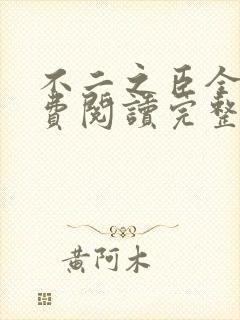 不二之臣全
費閱讀完整
黃阿木